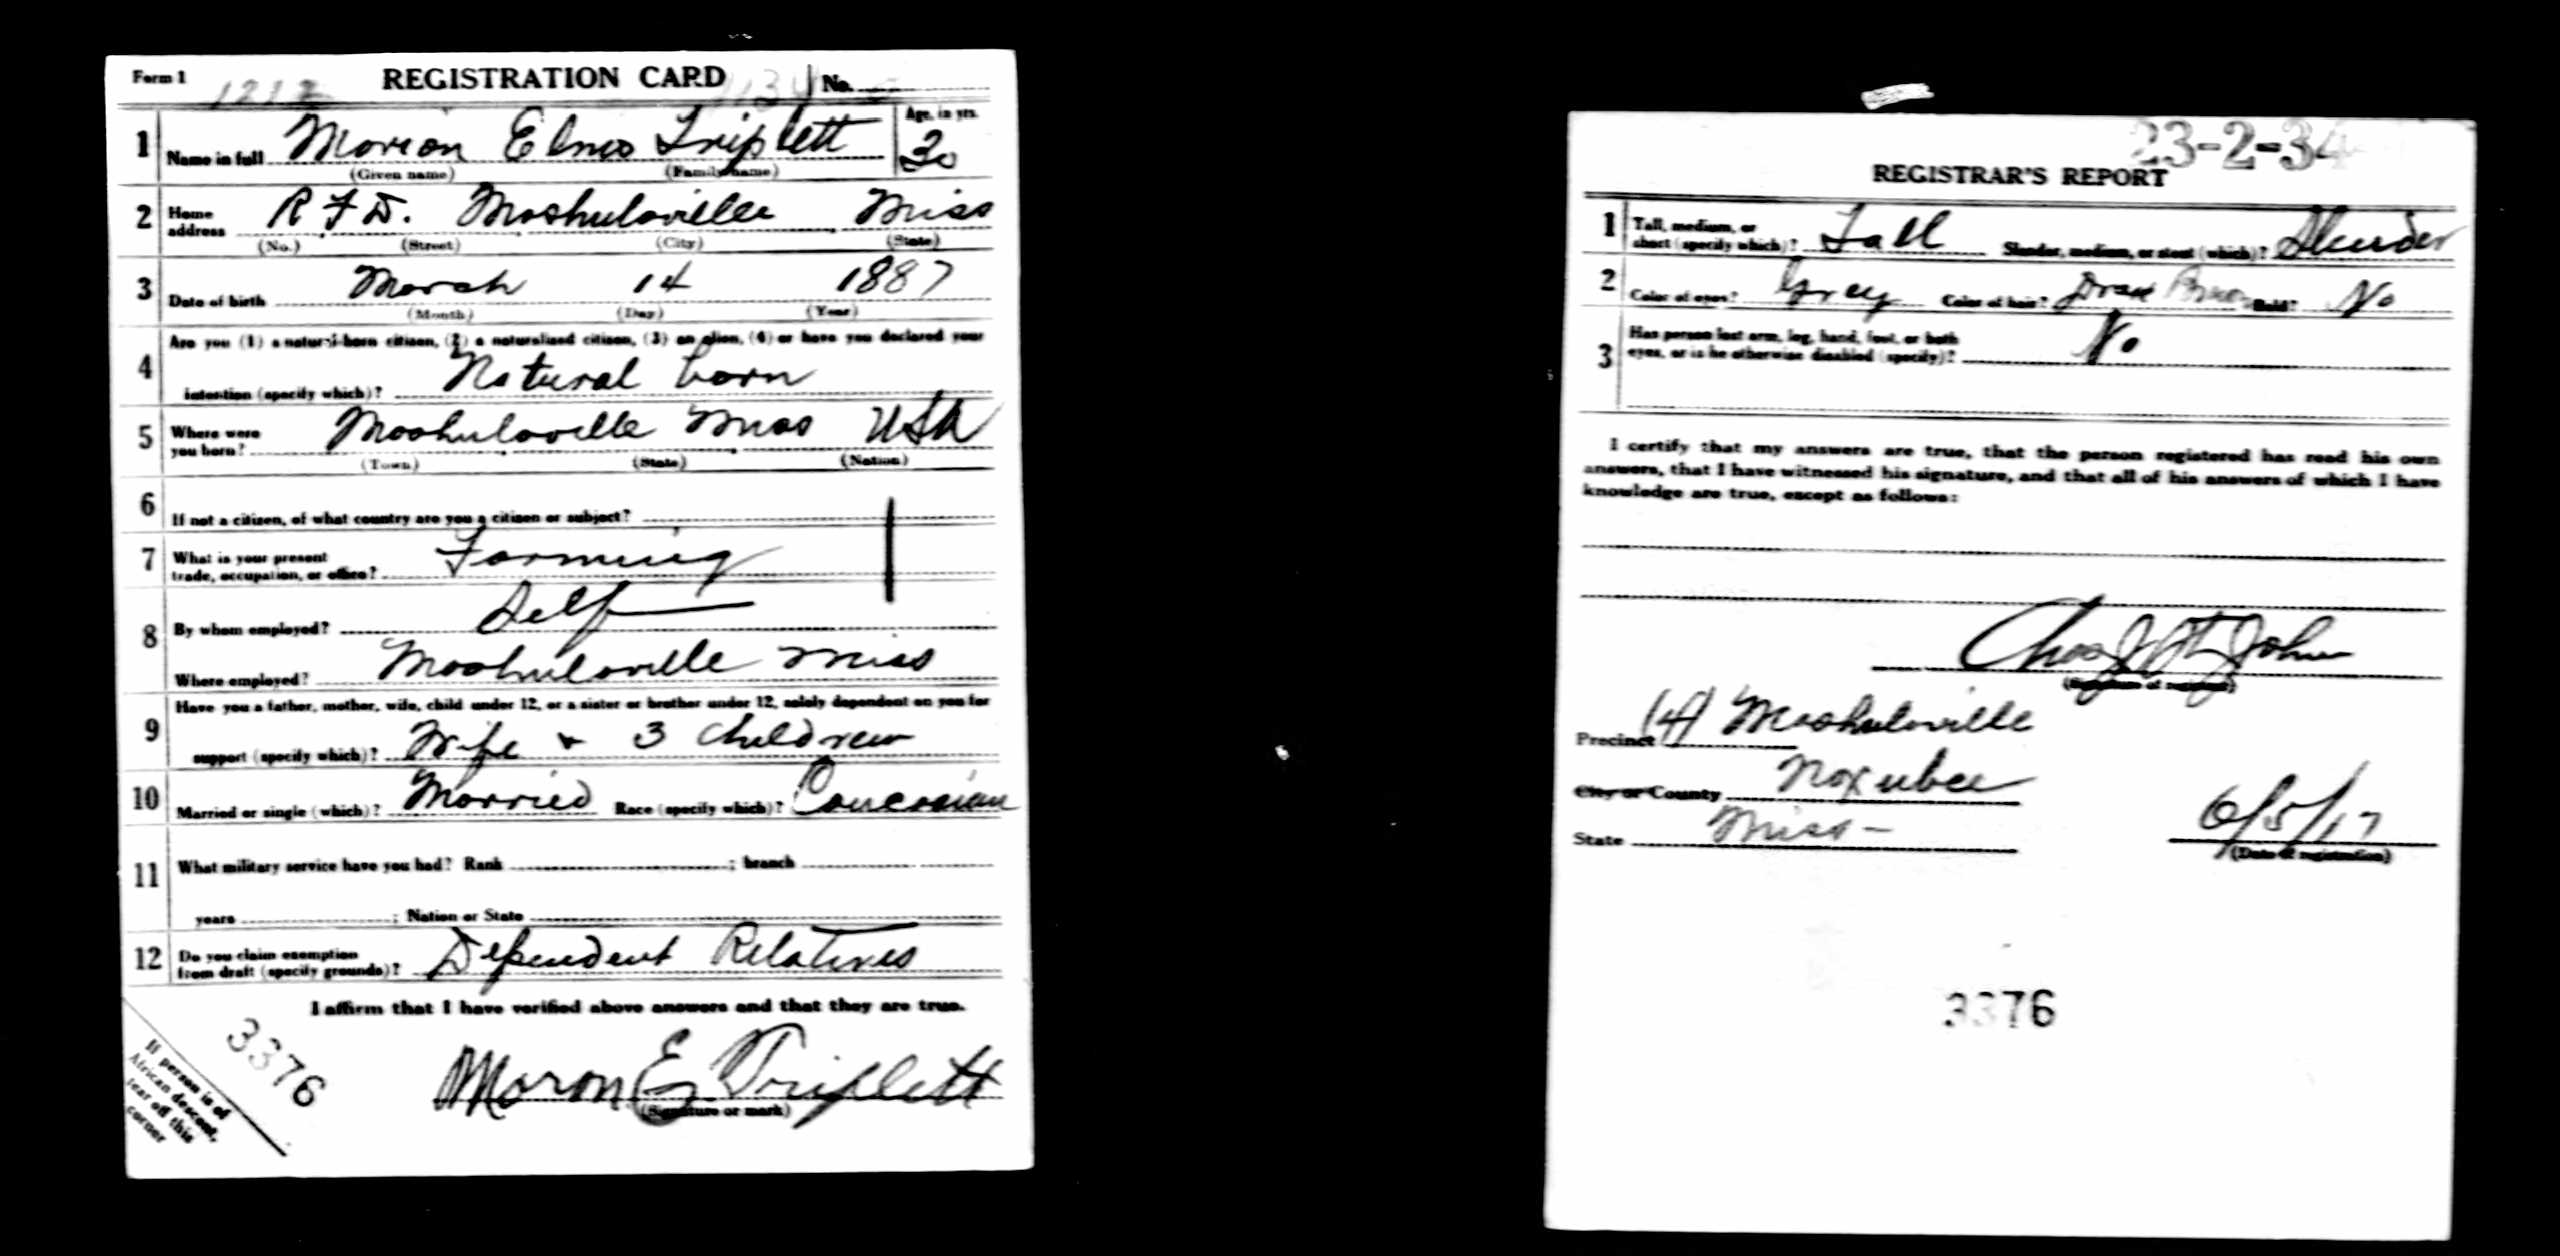 Form 1 1212 REGISTRATION CARD No.
1 Name in full Marion Elmo Triplett Age, in yrs. 30
(Given name) (Family name)
2 Home address R F D. Mashulaville Miss
(No.) (Street) (City) (State)
3 Date of birth March 14 1887
(Month) (Day) (Year)
4 Are you (1) a natural-born citizen, (2) a naturalized citizen, (3) an alien, (4) or have you declared your
intention (specify which)? Natural born
5 Where were you born? Mashulaville Miss USA
(Town) (State) (Nation)
6 If not a citizen, of what country are you a citizen or subject?
7 What is your present trade, occupation, or office? Farming
8 By whom employed? Self
Where employed? Mashulaville Miss
9 Have you a father, mother, wife, child under 12, or a sister or brother under 12, solely dependent on you for
support (specify which)? Wife & 3 Children
10 Married or single (which)? Married Race (specify which)? Caucasian
11 What military service have you had? Rank ; branch
years ; Nation or State
12 Do you claim exemption from draft (specify grounds)? Dependent Relatives
I affirm that I have verified above answers and that they are true.
3376
Marion E Triplett
(Signature or mark)
If person is of
African descent,
tear off this
corner
23-2-34
REGISTRAR'S REPORT
1 Tall, medium, or short (specify which)? Tall Slender, medium, or stout (which)? Slender
2 Color of eyes? Grey Color of hair? Brown Bald? No
3 Has person lost arm, leg, hand, foot, or both
eyes, or is he otherwise disabled (specify)? No
I certify that my answers are true, that the person registered has read his own
answers, that I have witnessed his signature, and that all of his answers of which I have
knowledge are true, except as follows:
(Signature of registrar)
Precinct (4) Mashulaville
City or County Noxubee
State Miss- 6/5/17
(Date of registration)
3376